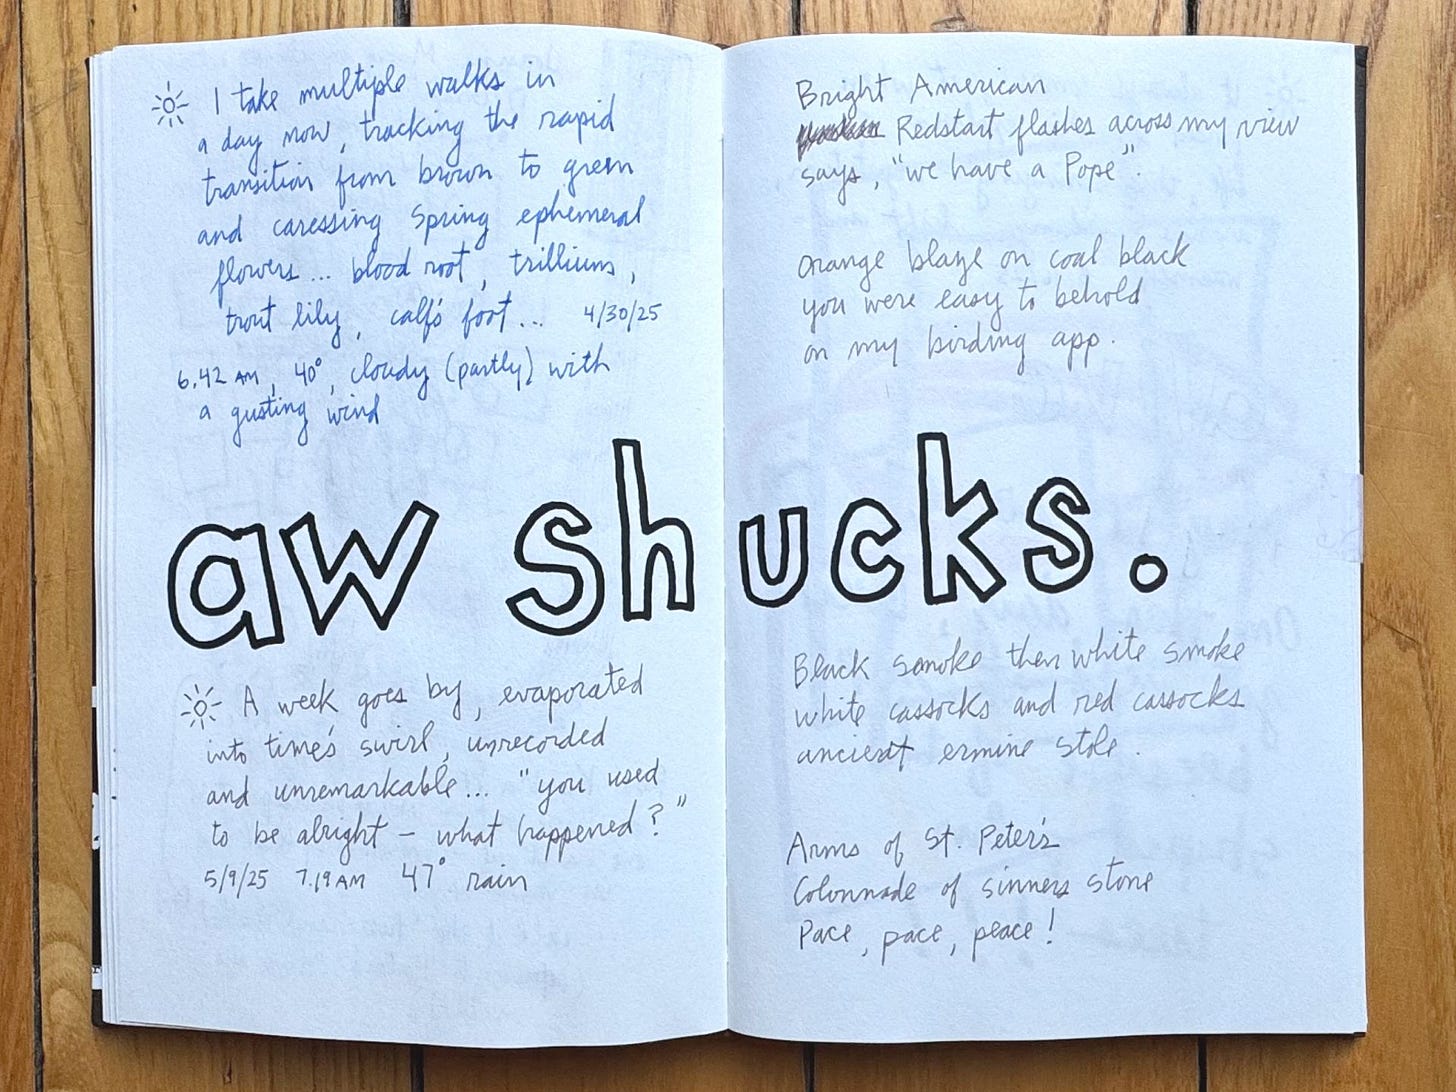 I take multiple walks in
a day now, tracking the rapid
transition from brown to green
and caressing Spring ephemeral
flowers... blood root, trilliums,
trout lily, calf's foot... 4/30/25
6.42 AM, 40°, cloudy (partly) with
a gusting wind
aw shucks.
A week goes by, evaporated
into time's swirl, unrecorded
and unremarkable... "you used
to be alright – what happened?"
5/9/25 7.19 AM 47° rain
Bright American
Redstart flashes across my view
says, "we have a Pope".
Orange blaze on coal black
you were easy to behold
on my birding app.
Black smoke then white smoke
white cassocks and red cassocks
ancient ermine stole.
Arms of St. Peter's
Colonnade of sinners stone
Pace, pace, peace!